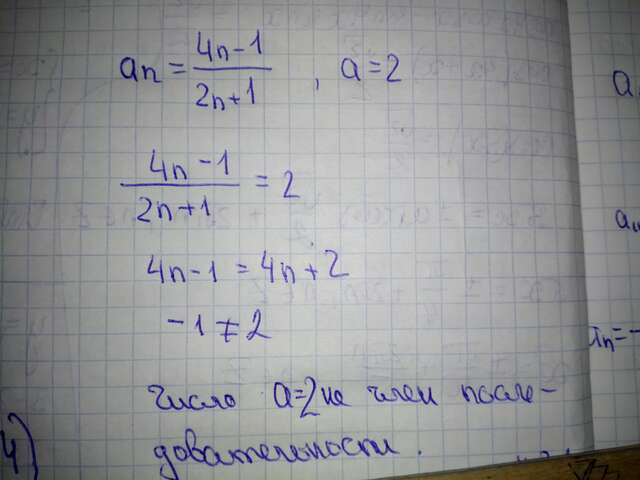 an = (4n-1)/(2n+1) , a=2
(4n-1)/(2n+1) = 2
4n-1 = 4n+2
-1 ≠ 2
Число a=2 не член после-
довательности.
4)